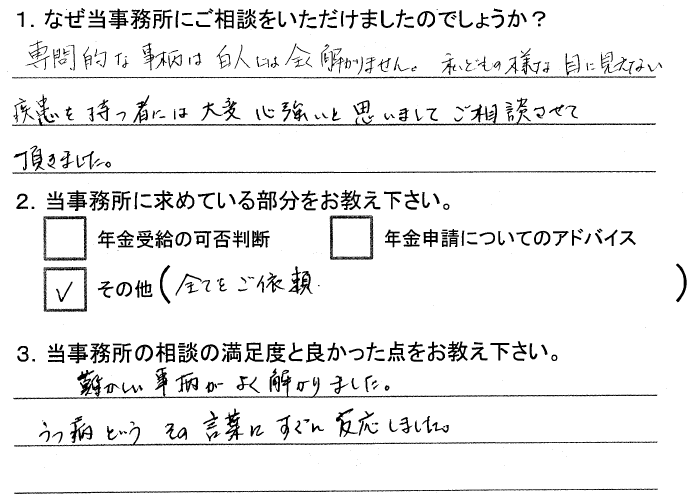 1. なぜ当事務所にご相談をいただけましたのでしょうか?
専問的な事柄は白人には全く解かりません。私どもの様な目に見えない
疾患を持つ者には大変心強いと思いましてご相談させて
頂きました。
2. 当事務所に求めている部分をお教え下さい。
年金受給の可否判断 年金申請についてのアドバイス
✓ その他(全てをご依頼. )
3. 当事務所の相談の満足度と良かった点をお教え下さい。
難かしい事柄がよく解かりました。
うつ病という その言葉にすぐに反応しました。